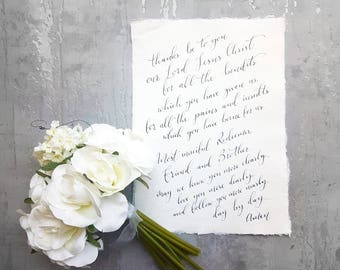 thanks be to you
our Lord Jesus Christ
for all the benefits
which you have given us
for all the pains and insults
which you have borne for us
Most merciful Redeemer
Friend and Brother
may we know you more clearly
love you more dearly
and follow you more nearly
day by day
Amen